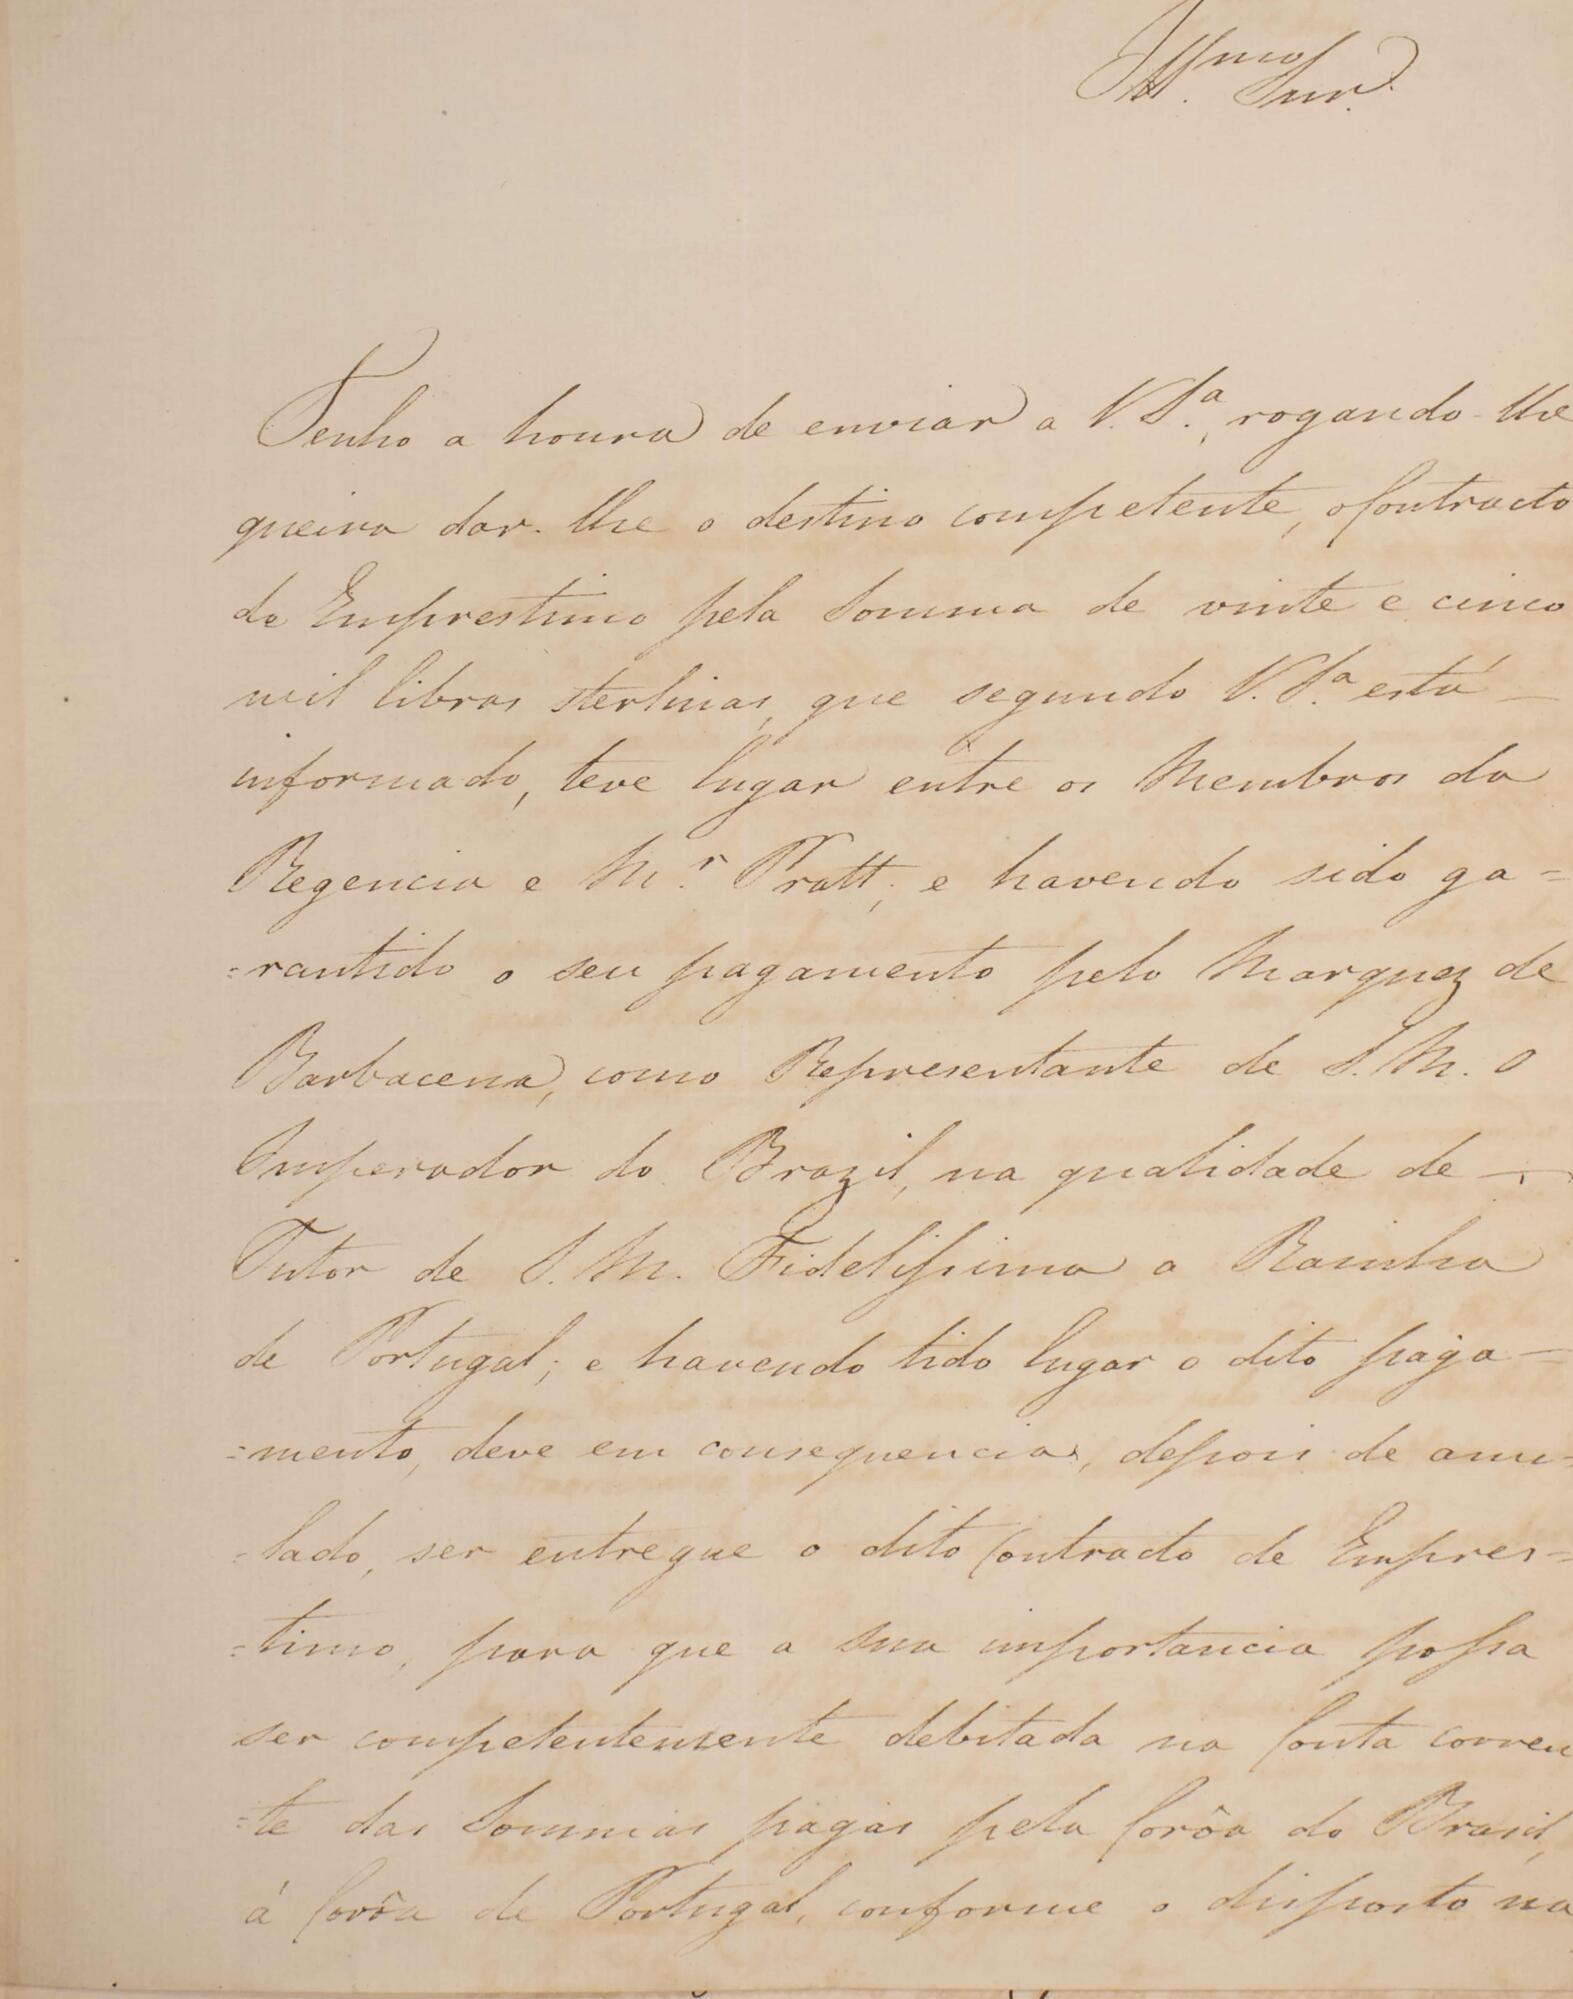 Illmo. Snr.
Tenho a honra de enviar a V. Sa., rogando-lhe
queira dar-lhe o destino competente, o Contracto
de Emprestimo pela Somma de vinte e cinco
mil libras sterlinas, que segundo V. Sa. está —
informado, teve lugar entre os Membros da
Regencia e Mr. Pratt; e havendo sido ga=
=rantido o seu pagamento pelo Marquez de
Barbacena, como Representante de S. M. O
Imperador do Brazil, na qualidade de —
Tutor de S. M. Fidelissima a Rainha
de Portugal; e havendo tido lugar o dito paga—
=mento, deve em consequencia, depois de anu=
=lado, ser entregue o dito Contracto de Empres=
=timo, para que a sua importancia possa
ser competentemente debitada na Conta corren
=te das Sommas pagas pela Corôa do Brasil,
á Corôa de Portugal, conforme o disposto na